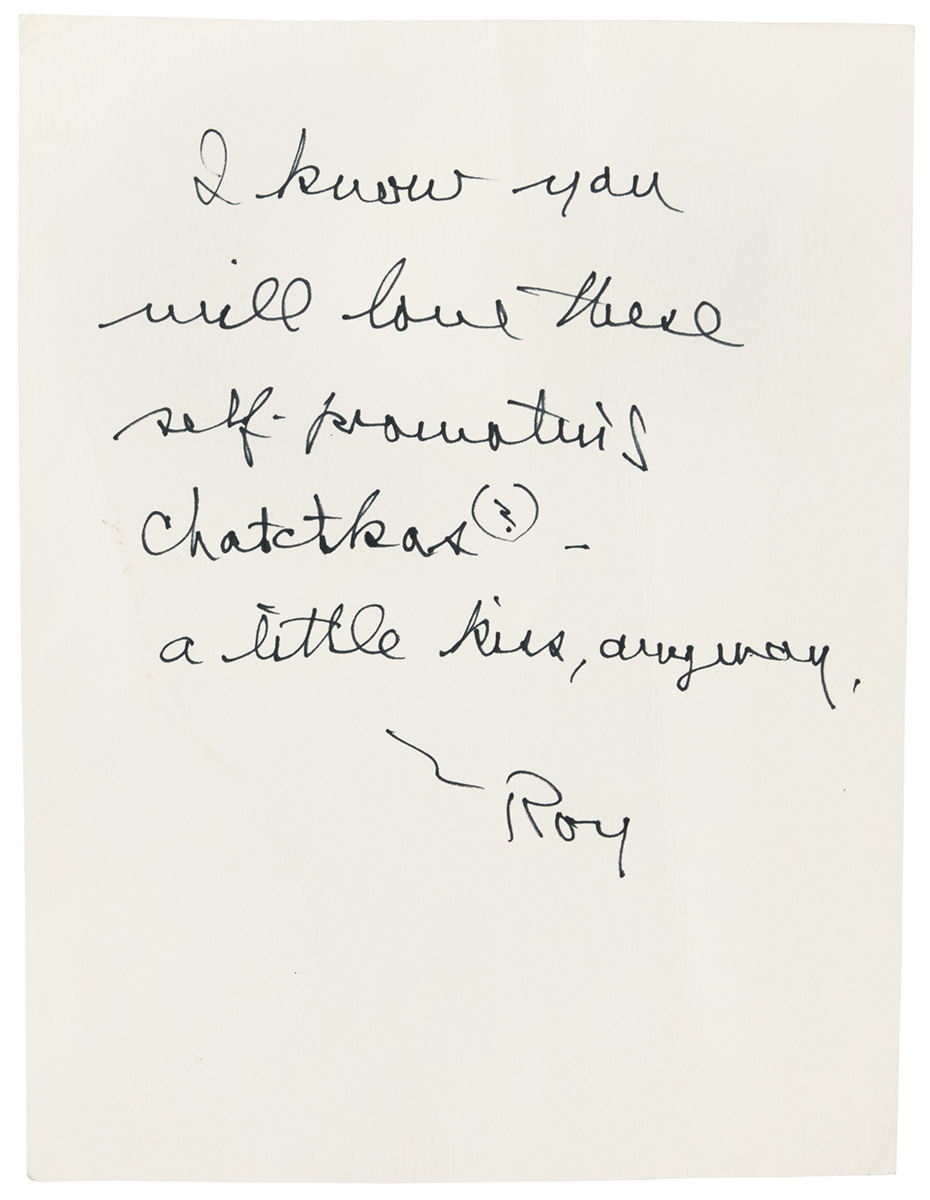 I know you
will love these
self-promoting
chatctkas(?) -
a little kiss, anyway,
~ Roy